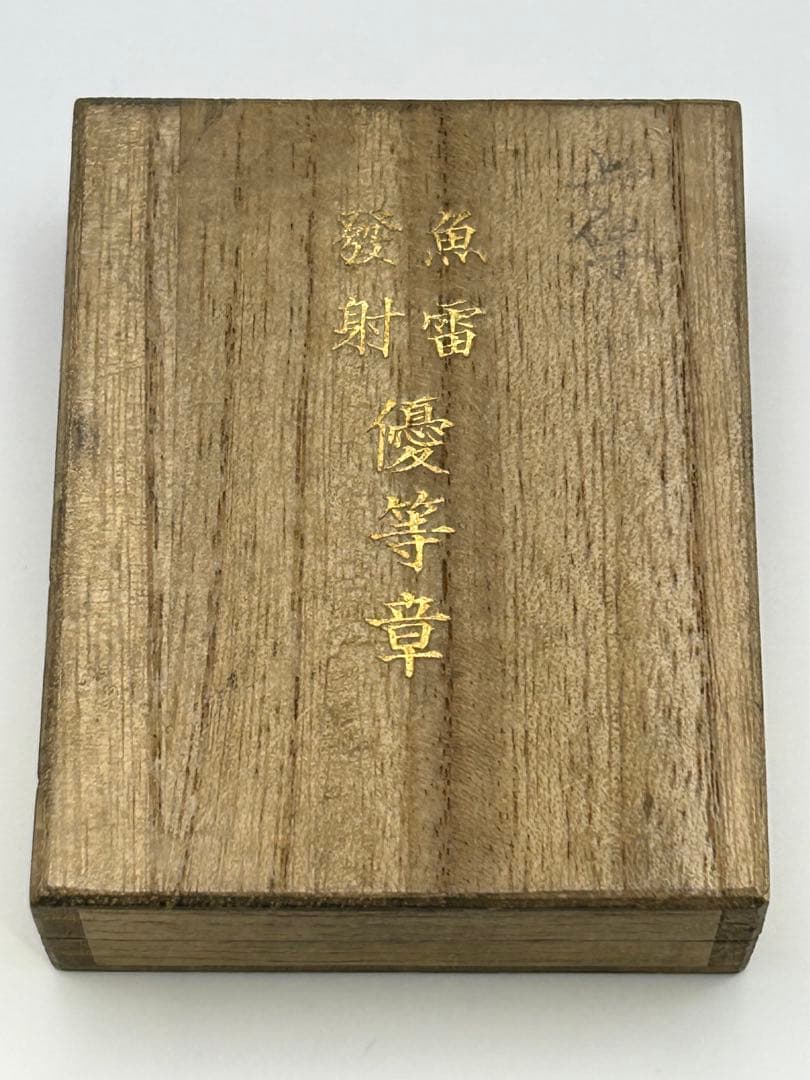 魚雷
發射
優等章